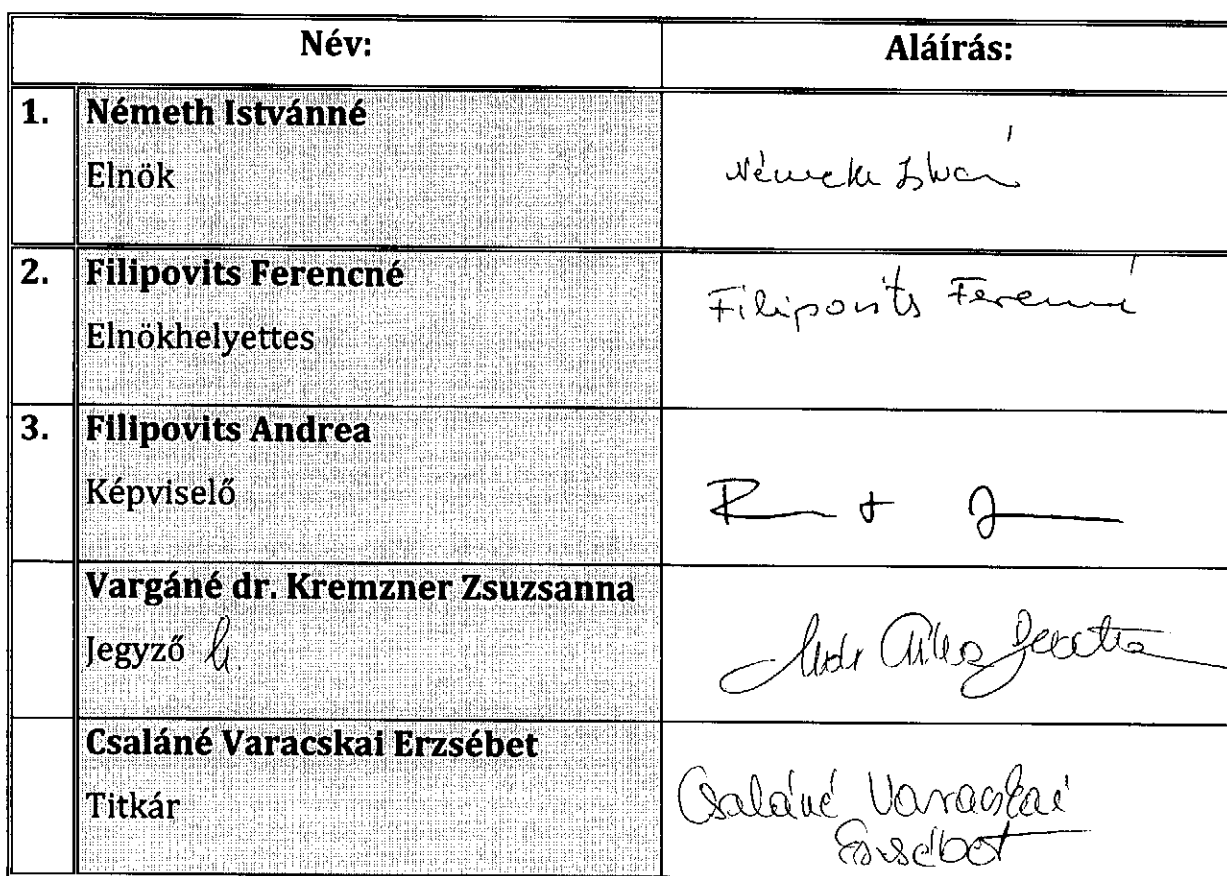 Név: Aláírás:
1. Németh Istvánné
Elnök
Németh István
2. Filipovits Ferencné
Elnökhelyettes
Filipovits Ferencné
3. Filipovits Andrea
Képviselő
Vargáné dr. Kremzner Zsuzsanna
Jegyző h.
Csaláné Varacskai Erzsébet
Titkár
Csaláné Varacskai
Erzsébet